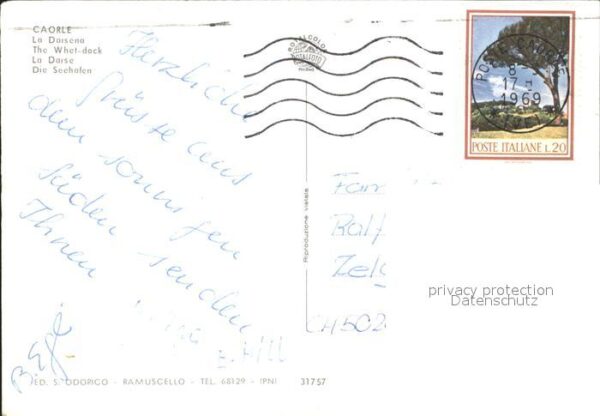 CAORLE
La Darsena
The Whet-dock
La Darse
Die Seehafen
Herzliche
Grüsse aus
dem sonnigen
Süden senden
Ihnen
ROTALCOLOR
ROTALFOTO
MILANO
POSTE CAORLE
8
17-
1969
POSTE ITALIANE L.20
Riproduzione vietata
Fam
Ralf
Zelg
CH 502
privacy protection
Datenschutz
ED. S. ODORICO - RAMUSCELLO - TEL. 68129 - (PN) 31757